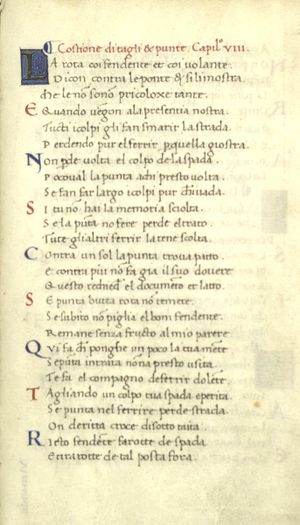 Costione di tagli & punte. Capilo VIII.
LA rota coi fendente et coi volante.
Dicon contra le ponte & si li mostra.
Che le nõ sono pricoloxe tante.
E Quando vegon ala presentia nostra.
Tucti icolpi gli fan smarir la strada.
Perdendo pur el ferrir p quella giostra.
Non pde volta el colpo de la spada.
Poco val la punta a chi presto volta.
Se fan far largo i colpi pur ch vada.
Si tu nõ hai la memoria sciolta.
Se la pũta nõ fere perde el trato.
Tute gli altri ferrir la tene scolta.
Contra un sol la punta trova patto.
E contra piu nõ fa gia il suo dovere
Questo rechied el documẽto et latto.
Se punta butta rota nõ temere.
Se subito nõ piglia el bom fendente.
Remane senza fructo al mio parere
Qui fa ch ponghe un poco la tua mẽte
Se pũta intra nõ na presto usita.
Te fa el compagno de ferrir dolẽte.
Tagliando un colpo tua spada e perita.
Se punta nel ferrire perde strada.
On deritta croce di sotto taita.
Resto fendẽte fa rotte de spada
E tra rotte de tal posta fora.